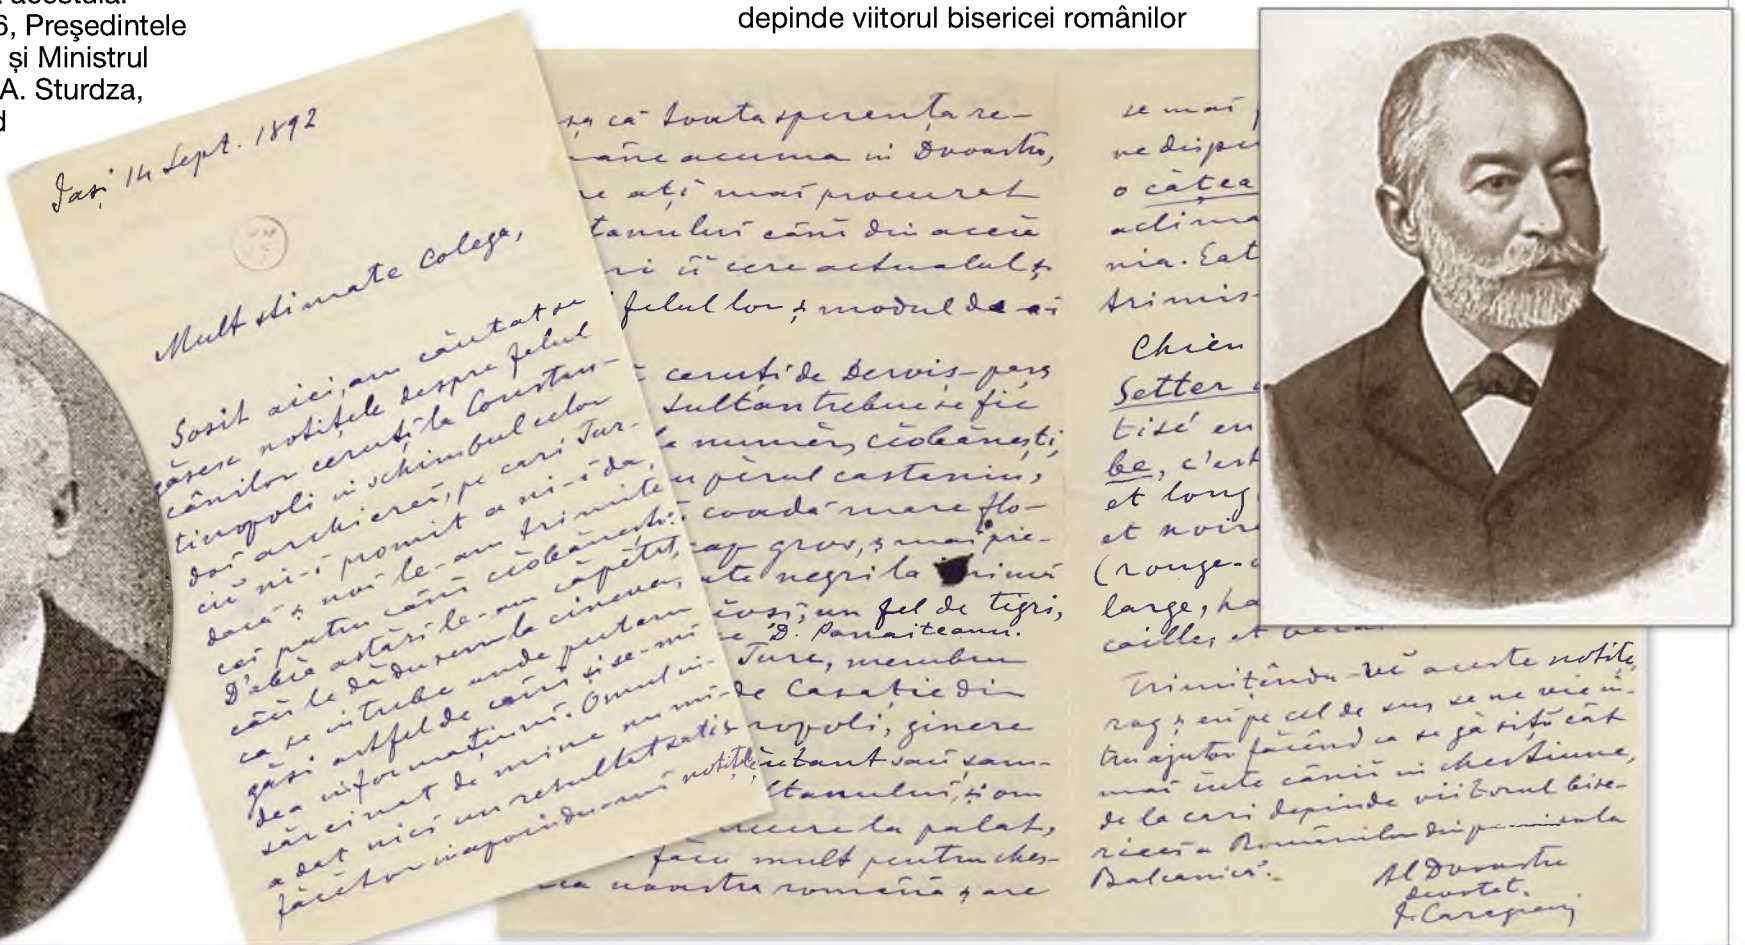 acestuia.
6, Președintele
și Ministrul
A. Sturdza,
d
depinde viitorul bisericei românilor
Iași 14 Sept. 1892
Mult stimate Colega,
Sosit aici, am căutat se
găsesc notițele despre felul
cânilor ceruți la Constan-
tinopoli in schimbul celor
doi archierei, pe cari Tur-
cii ni-i promit a ni-i da,
dacă și noi le-am trimite
cei patru câni ciobănești.
D'abia astări le-am căpětat,
căci le dădusem la cineva,
ca se intrebe unde putem
găsi astfel de câni și se-mi
dea informațiuni. Omul in-
sărcinat de mine nu mi-
a dat nici un resultat satis
făcětor inapoindu-mi notițele
că toată sperența re-
mâne acuma in Dvoastră,
ați mai procurat
tanului câni din aceia
ii cere actualul și
felul lor și modul de a-i
ceruți de Dervis-pașa
Sultan trebue se fie
numěr, ciobănești,
pěrul castaniu,
coadă mare flo-
cap gros, și mai pie-
negri la inimă
un fel de tigri,
D. Panaiteanu.
Turc, membru
de Casație din
nopoli, ginere
sau șam-
ltanului, și om
la palat,
făcu mult pentru ches-
noastră română și are
se mai
ne dispu
o câtea
aclima
nia. Eat
trimis-
Chien
Setter
tisé en
be, c'est
et long
et noir
(rouge-
large, ha
caille, et
Trimițěndu-vě aceste notițe,
rog și eu pe cel de sus se ne vie in-
tru ajutor făcěnd a se găsi tŭ căt
mai iute cânii in chestiune,
de la cari depinde viitorul bise-
ricei a Românilor din peninsula
Balcanică.
Al Dvoastră
devotat.